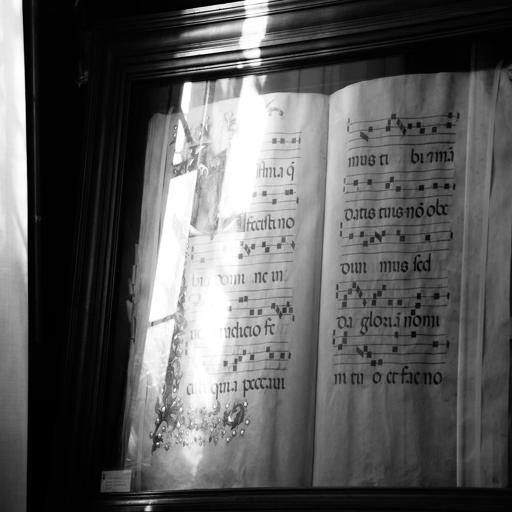 fecisti no
bis domi ne in
iudicio fe
cisti quia peccavi
mus ti bi z mã
datis tuis nõ obe
divi mus sed
da gloriã nomi
ni tu o et fac no